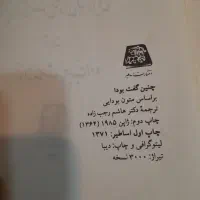 چنین گفت بودا
براساس متون بودایی
ترجمهٔ دکتر هاشم رجب زاده
چاپ دوم: ژاپن ۱۹۸۵ (۱۳۶۴)
چاپ اول اساطیر: ۱۳۷۱
لیتوگرافی و چاپ: دیبا
تیراژ: ۳۰۰۰ نسخه